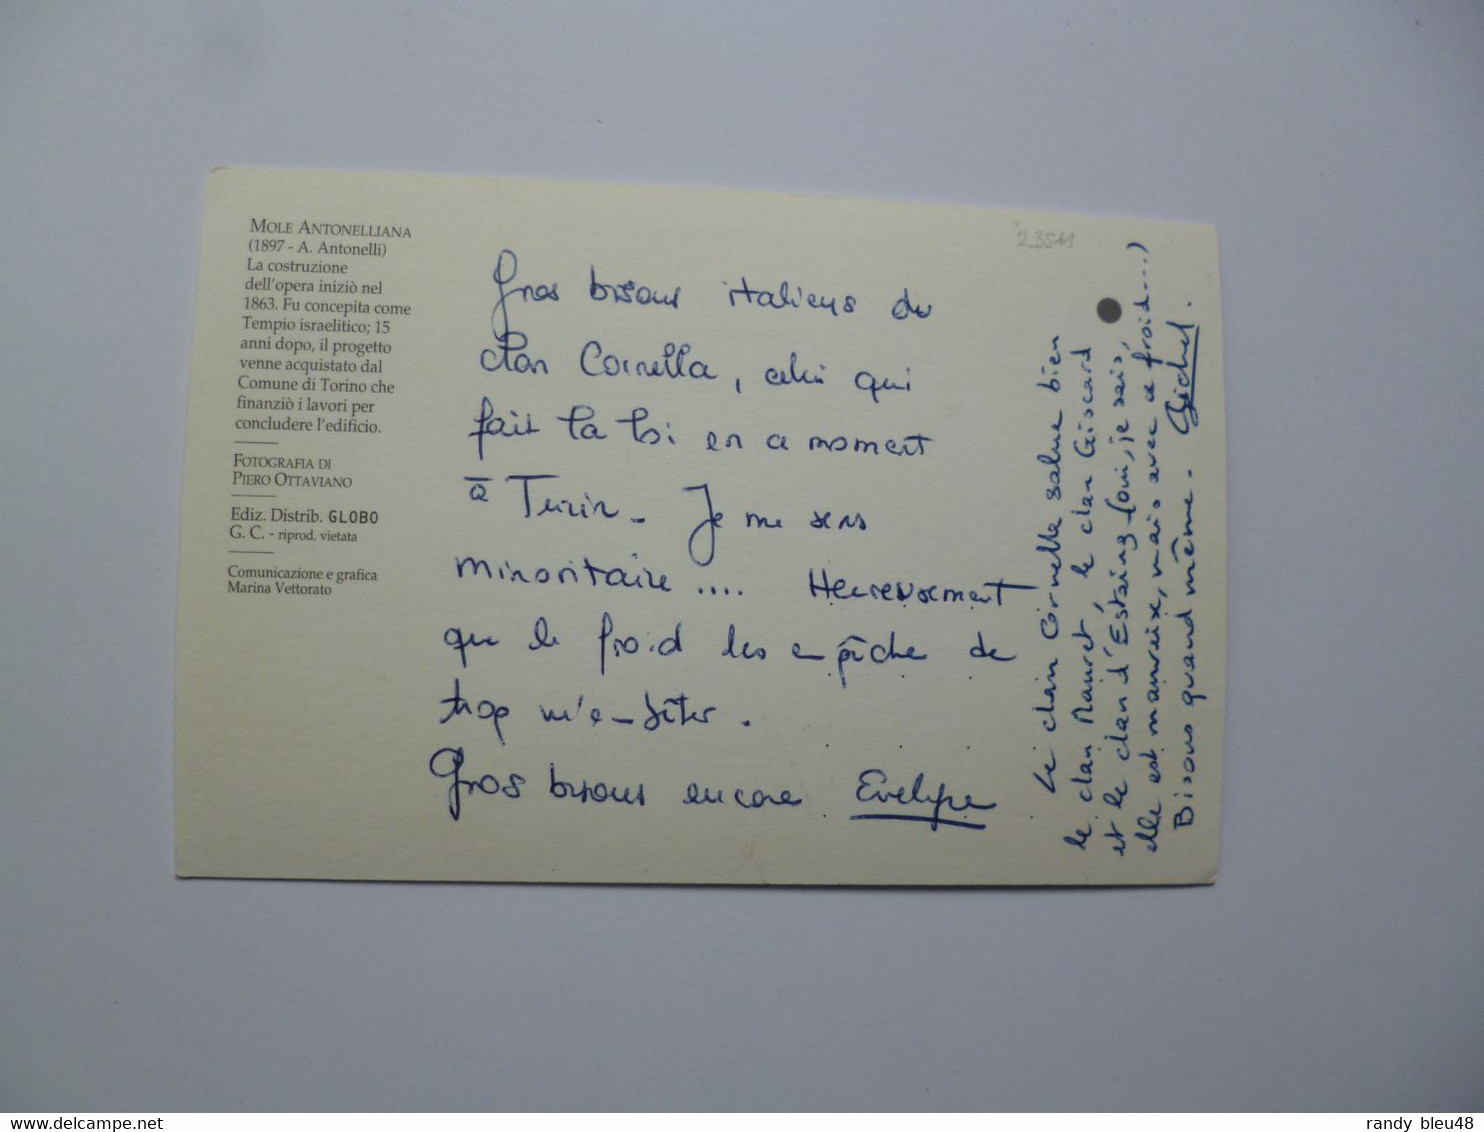 MOLE ANTONELLIANA
(1897 - A. Antonelli)
La costruzione
dell'opera iniziò nel
1863. Fu concepita come
Tempio israelitico; 15
anni dopo, il progetto
venne acquistato dal
Comune di Torino che
finanziò i lavori per
concludere l'edificio.
FOTOGRAFIA DI
PIERO OTTAVIANO
Ediz. Distrib. GLOBO
G. C. - riprod. vietata
Comunicazione e grafica
Marina Vettorato
Gros bisous italiens du
clan Cornella, celui qui
fait la loi en ce moment
à Turin. Je me sens
minoritaire .... Heureusement
que le froid les empêche de
trop m'embêter.
Gros bisous encore Evelyne
23511
Le clan Cornella salue bien
le clan Mauret, le clan Giscard
et le clan d'Estaing (oui, je sais,
elle est mauvaise, mais avec ce froid....)
Bisous quand même.
delcampe.net
randy_bleu48